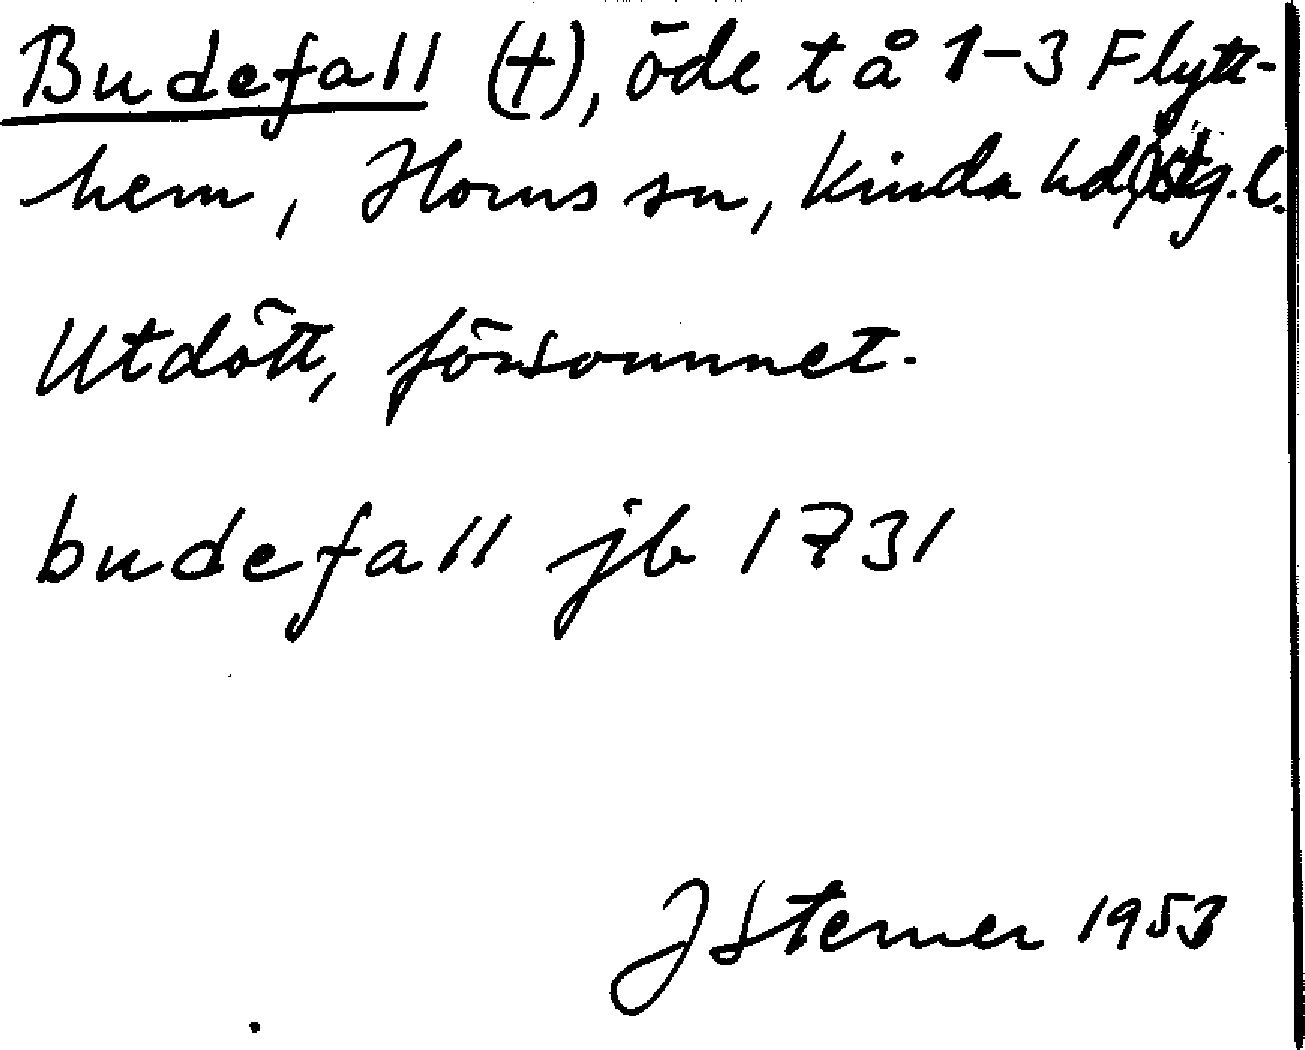 Budefall (†), öde tå 1-3 Flytt-
hem, Horns sn, Kinda hd, Östg. l.
Utdött, försvunnet.
budefall jb 1731
J Sterner 1953